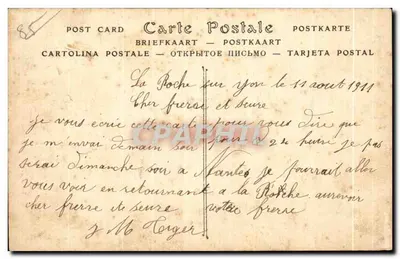 85
POST CARD Carte Postale POSTKARTE
BRIEFKAART — POSTKAART
CARTOLINA POSTALE — ОТКРЫТОЕ ПИСЬМО — TARJETA POSTAL
La Roche sur yon le 11 aout 1911
Cher frerse et seure
je vous écrie cette carte pour vous dire que
je m'envai demain soir pour 24 heure je pas
serai dimanche soir a Nantes je pourrait aller
vous voir en retournant a la Roche aurevoir
cher frerse de seure votre frerse
J M